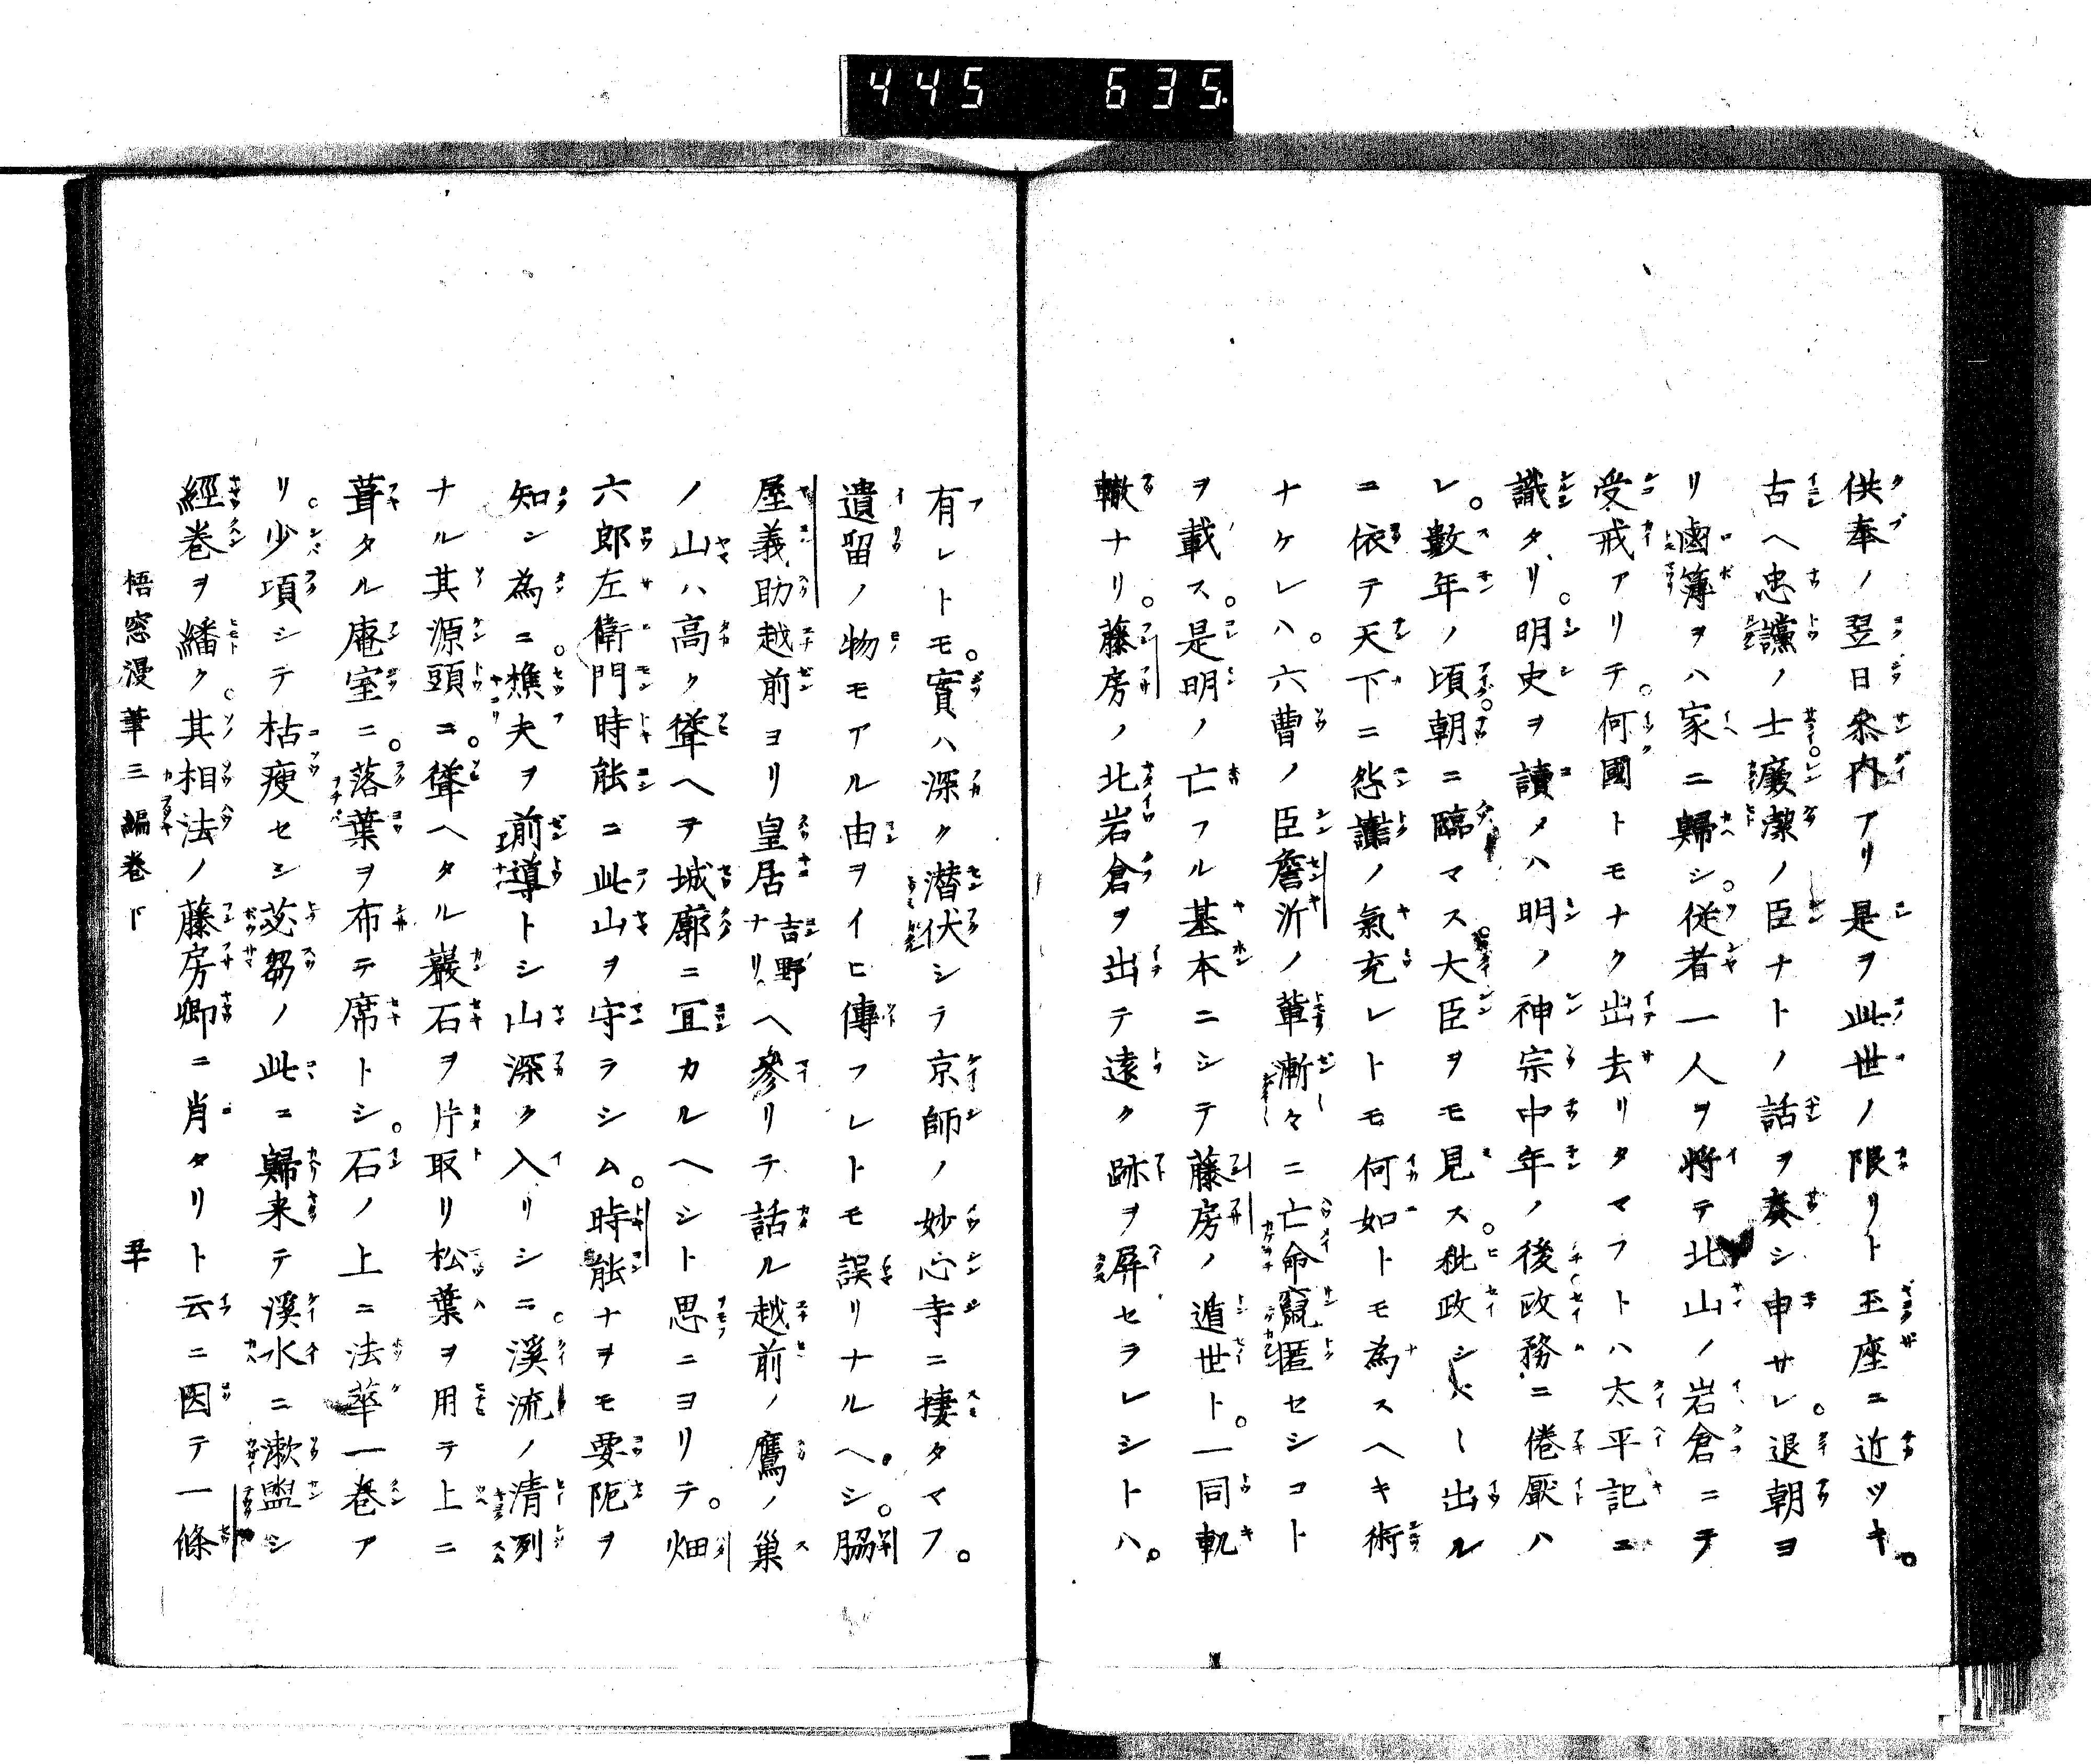 445 635.
供奉ノ翌日參内アリ是ヲ此世ノ限リト玉座ニ近ツキ。
古ヘ忠讜ノ士廢潔ノ臣ナトノ話ヲ奏シ申サレ。退朝ヨ
リ鹵簿ヲハ家ニ歸シ。従者一人ヲ将テ北山ノ岩倉ニテ
受戒アリテ。何國トモナク出去リタマフトハ太平記ニ
識タリ。明史ヲ讀メハ明ノ神宗中年ノ後政務ニ倦厭ハ
レ。數年ノ頃朝ニ臨マス大臣ヲモ見ス。秕政シバ〳〵出ル
ニ依テ天下ニ怨讟ノ氣充レトモ何如トモ為スヘキ術
ナケレハ。六曹ノ臣詹沂ノ輩漸々ニ亡命竄匿セシコト
ヲ載ス。是明ノ亡フル基本ニシテ藤房ノ遁世ト。一同軌
轍ナリ。藤房ノ北岩倉ヲ出テ遠ク跡ヲ屏セラレシトハ。
有レトモ。實ハ深ク潜伏シテ京師ノ妙心寺ニ捿タマフ。
遺留ノ物モアル由ヲイヒ傳フレトモ誤リナルヘシ。脇
屋義助越前ヨリ皇居ナリ吉野ヘ參リテ話ル越前ノ鷹ノ巣
ノ山ハ高ク聳ヘヲ城廓ニ冝カルヘシト思ニヨリテ。畑
六郎左衛門時能ニ此山ヲ守ラシム。時能ナヲモ要阨ヲ
知ン為ニ。樵夫ヲ前導トシ山深ク入リシニ。溪流ノ清冽
ナル其源頭ニ。聳ヘタル巖石ヲ片取リ松葉ヲ用テ上ニ
葺タル庵室ニ。落葉ヲ布テ席トシ。石ノ上ニ法華一巻ア
リ。少頃シテ枯痩セシ苾芻ノ此ニ歸来テ溪水ニ漱盥シ
經巻ヲ繙ク。其相法ノ藤房卿ニ肖タリト云ニ因テ一條
梧窓漫筆三編巻下